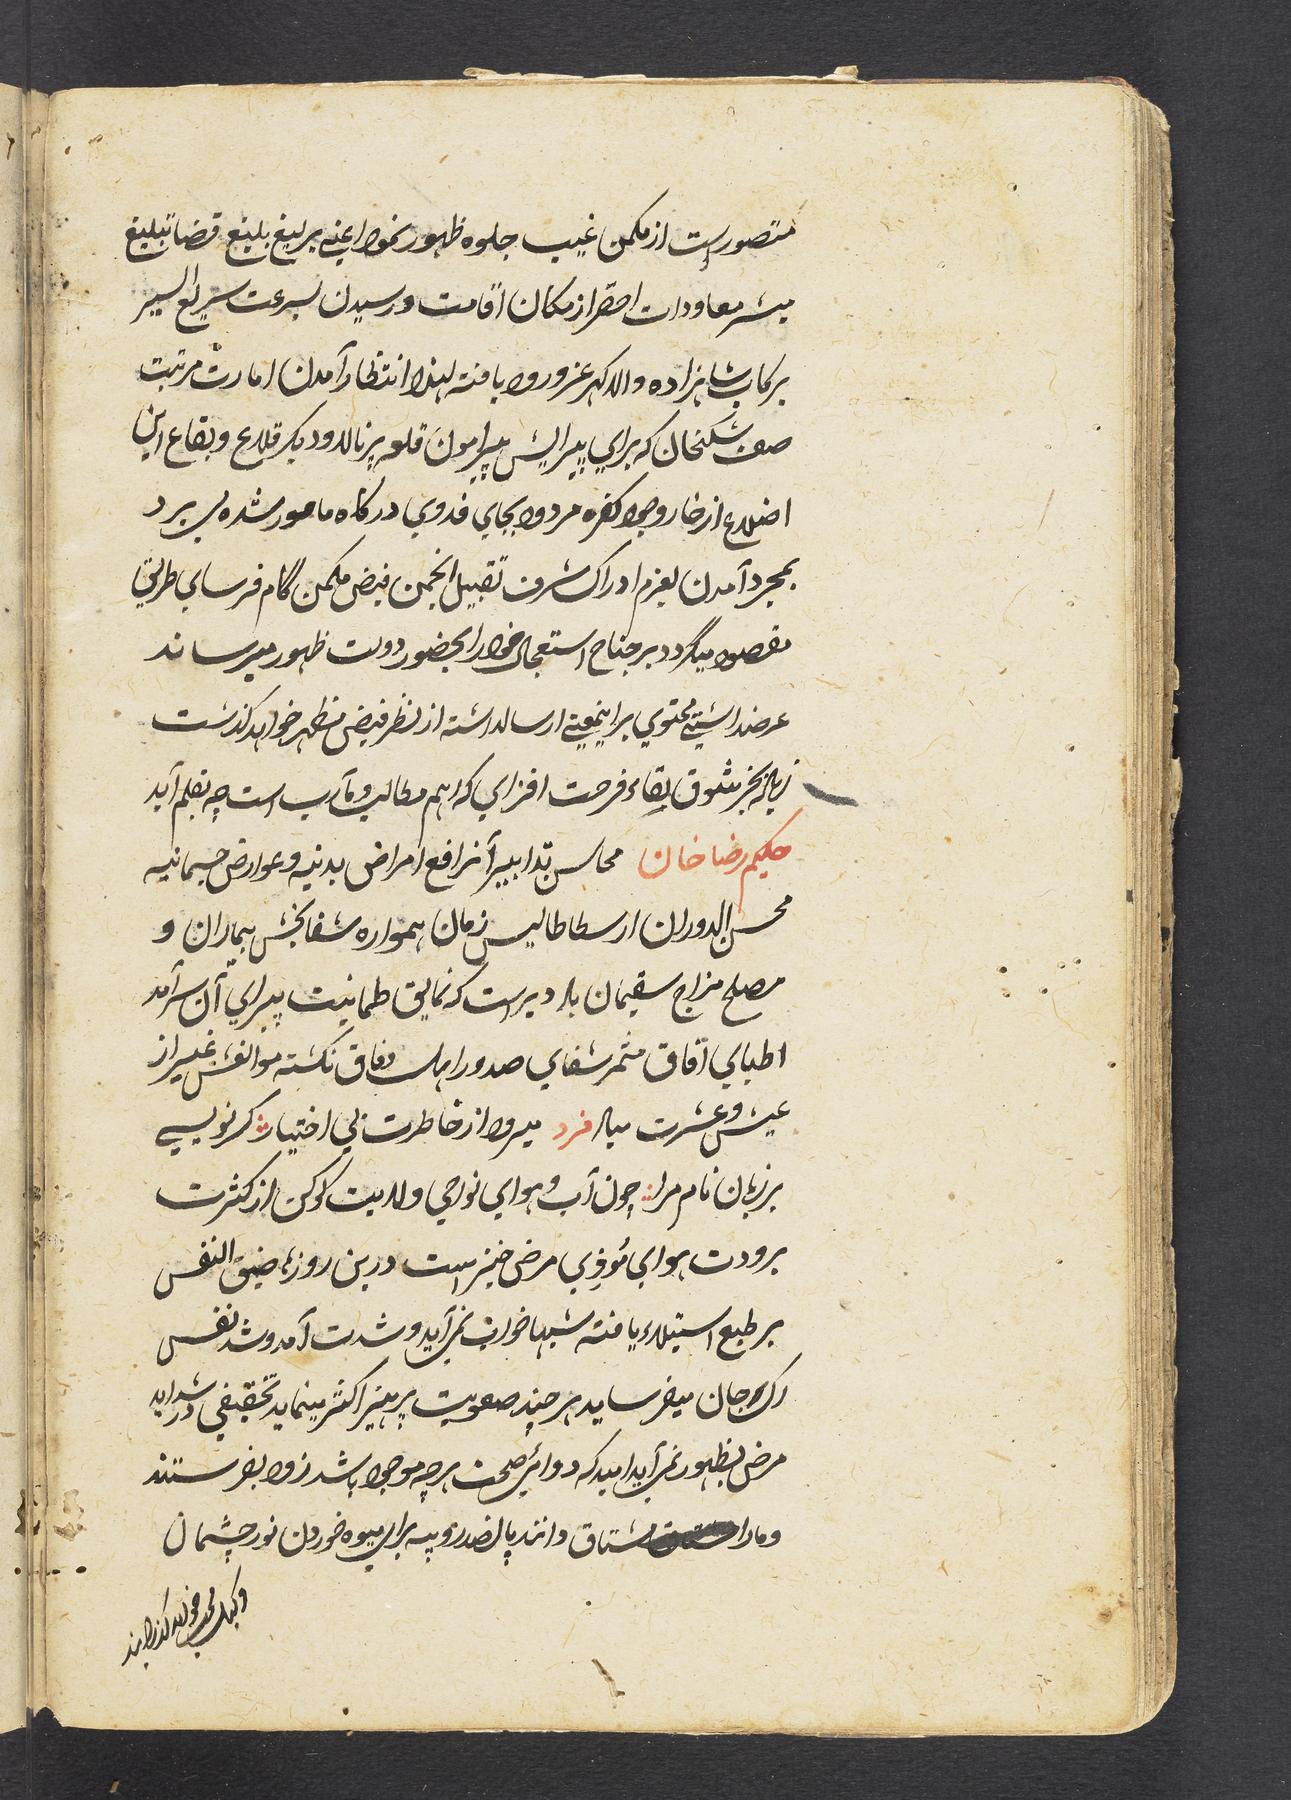 متصورست از مکمن غیب جلوه ظهور نمود یعنی یرلیغ بلیغ قضا تبلیغ
مبشر معاودات احقر از مکان اقامت و رسیدن بسرعت سریع السیر
برکاب شاهزاده والا گهر عز ورود یافته لهذا انتظار آمدن امارت مرتبت
صف شکنخان که برای پیرایش پیرامون قلعه پرناله و دیگر قلاع و بقاع این
اضلاع از خار وجود کفره مردود بجای فدوی درگاه مامور شده می برد
بمجرد آمدن بعزم ادراک شرف تقبیل انجمن فیض مکمن گام فرسای طریق
مقصود میگردد بر جناح استعجال خود را بحضور دولت ظهور میرساند
عرضداشتی محتوی بر اینمعنی ارسالداشته از نظر فیض مظهر خواهد گذشت
زیاده بجز شوق لقاء فرحت افزای که اهم مطالب و مآرب است چه بقلم آید
حکیم رضا خان محاسن تدابیر آنرافع امراض بدنیه و عوارض جسمانیه
محسن الدوران ارسطاطالیس زمان همواره شفابخش بیماران و
مصلح مزاج سقیمان باد دیرست که نمایق طمانیت پیرای آن سرآمد
اطبای آفاق مثمر شفای صدور اهل وفاق نگشته موانعش غیر از
عیش و عشرت مباد فرد میرود از خاطرت بی اختیار گر نویسی
بر زبان نام مرا چون آب و هوای نواحی ولایت کوکن از کثرت
برودت هوای موذی مرض خیز است درین روزها ضیق النفس
بر طبع استیلاء یافته شبها خواب نمی آید و شدت آمد و شد نفس
رگ جان میفرساید هر چند صعوبت پرهیز اکثر مینماید تخفیفی در شداید
مرض بظهور نمی آید امید که دوائی صحت هر چه موجود باشد زود بفرستند
و مارا مشتاق دانند پانصد روپیه برای میوه خوردن نور چشمان
وکیل محب خواهد گذرانید